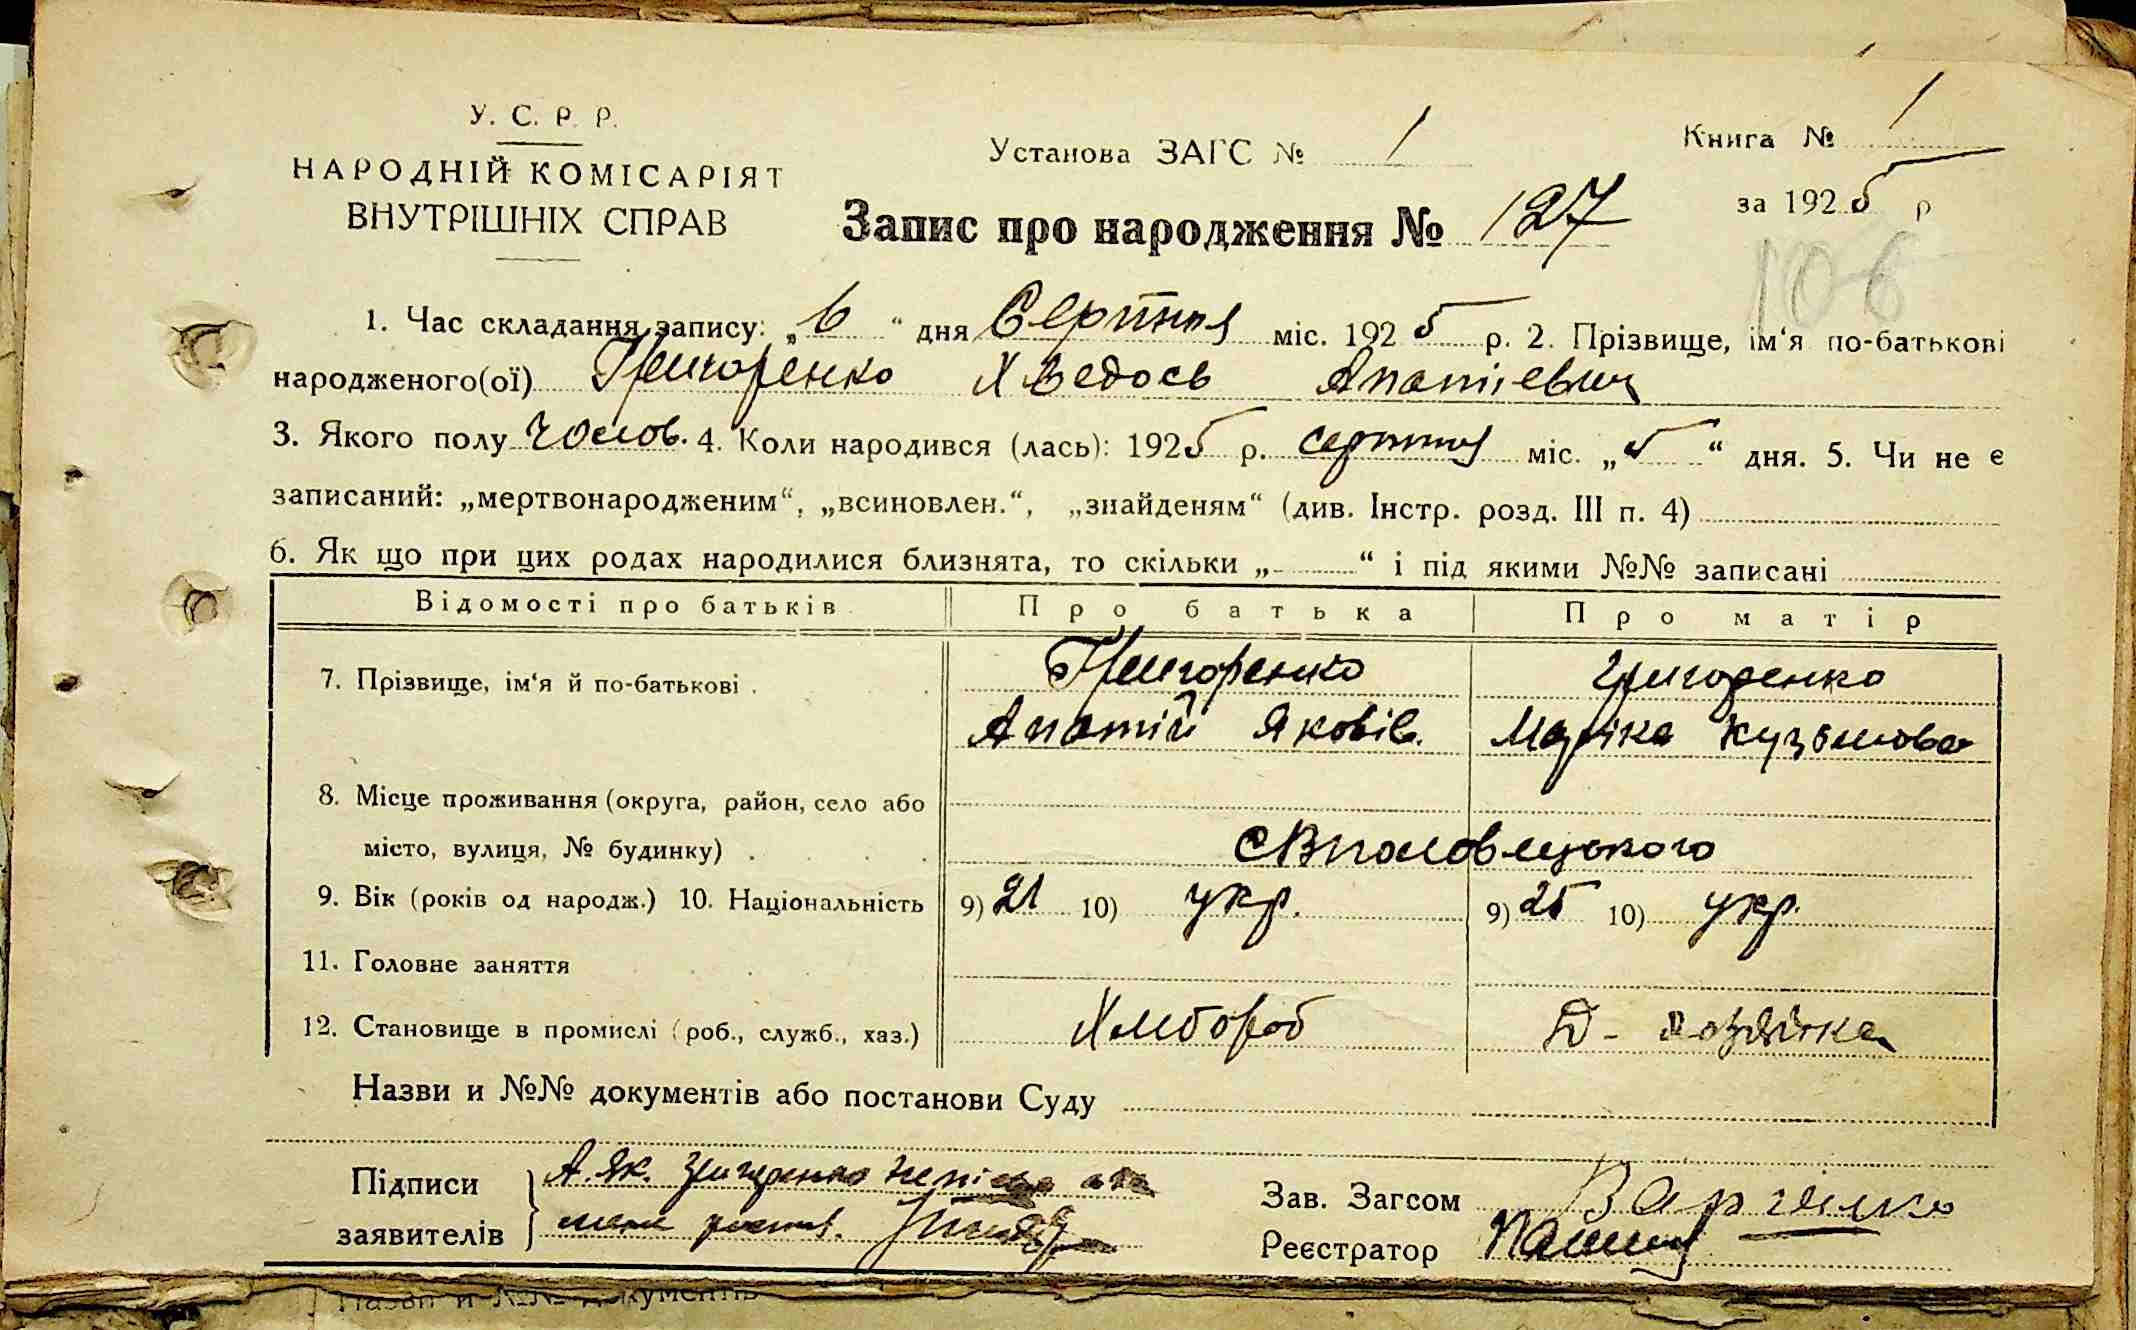 У. С. Р. Р.
НАРОДНІЙ КОМІСАРІЯТ
ВНУТРІШНІХ СПРАВ
Установа ЗАГС № 1
Книга № 1
за 1925 р
Запис про народження № 127
106
1. Час складання запису: „6“ дня Серпня міс. 1925 р. 2. Прізвище, ім‘я по-батькові
народженого(ої) Григоренко Хведось Апатіевич
3. Якого полу чолов. 4. Коли народився (лась): 1925 р. серпня міс. „5“ дня. 5. Чи не є
записаний: „мертвонародженим“, „всиновлен.“, „знайденям“ (див. Інстр. розд. III п. 4)
6. Як що при цих родах народилися близнята, то скільки „ “ і під якими №№ записані
Відомості про батьків Про батька Про матір
7. Прізвище, ім‘я й по-батькові Григоренко Григоренко
Апатій Яковів. Маріка Кузьмова
8. Місце проживання (округа, район, село або
місто, вулиця, № будинку)
9. Вік (років од народж.) 10. Національність 9) 21 10) укр. 9) 25 10) укр.
11. Головне заняття
12. Становище в промислі (роб., служб., хаз.) Хлібороб Д-хозяйка
Назви и №№ документів або постанови Суду
Підписи А. Як. Григоренко
заявителів
Зав. Загсом
Реєстратор
Назви и №№ документів